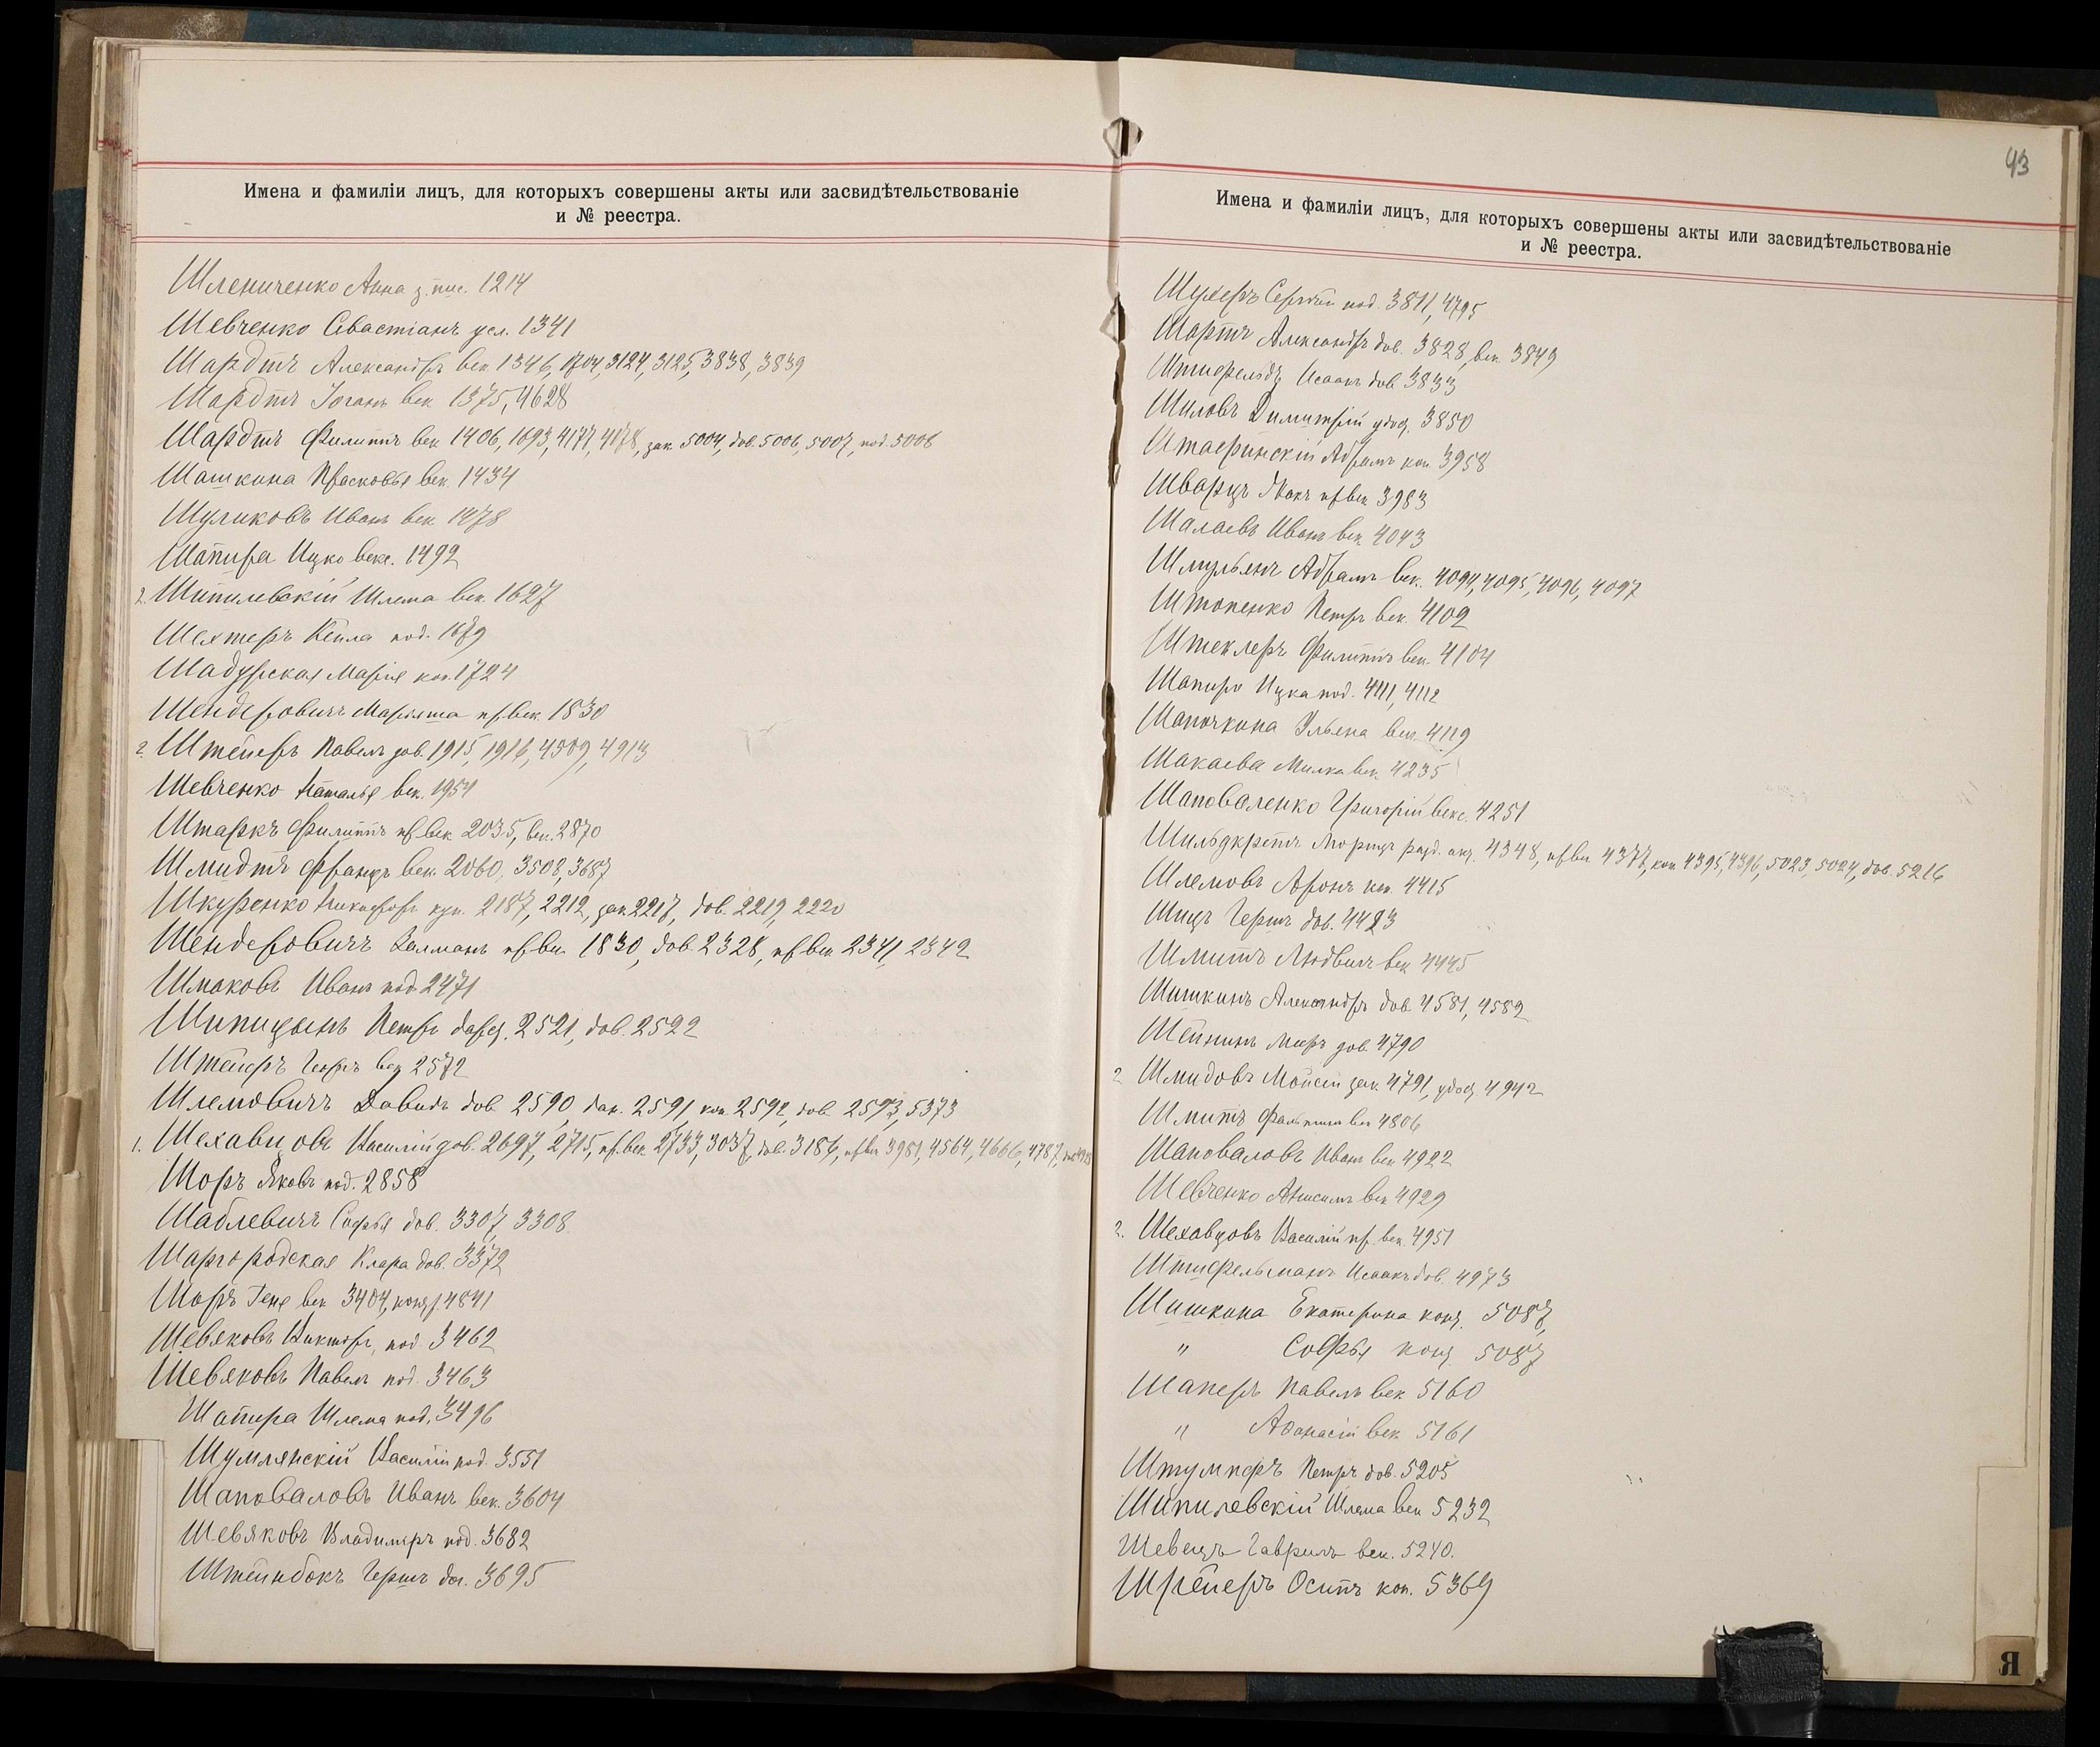 Имена и фамиліи лицъ, для которыхъ совершены акты или засвидѣтельствованіе
и № реестра.
Шлениченко Анна з. пис. 1214
Шевченко Севастіанъ усл. 1341
Шардтъ Александръ век 1346, 1704, 3124, 3125, 3838, 3839
Шардтъ Іоганъ век 1375, 4628
Шардтъ Филиппъ век 1406, 1693, 4177, 4178, зак. 5004, дов. 5006, 5007, под. 5008
Шашкина Прасковья век. 1434
Шуликовъ Иванъ век 1478
Шапира Ицко векс. 1492
2. Шипилевскій Шлема век. 1627
Шехтеръ Кейла под. 1679
Шадурская Марія коп. 1724
Шендеровичъ Маріяша пр. век. 1830
2. Штейеръ Павелъ дов. 1915, 1916, 4509, 4913
Шевченко Наталья век. 1954
Штаркъ Филиппъ пр век 2035, век. 2870
Шмидтъ Францъ век. 2060, 3508, 3687
Шкуренко Никифоръ куп. 2187, 2212, зак 2217, дов. 2219, 2220
Шендеровичъ Калманъ пр век 1830, дов. 2328, пр век 2341, 2342
Шмаковъ Иванъ под 2471
Шипицынъ Петръ 2521, дов. 2522
Штейеръ век 2572
Шлемовичъ Давидъ дов. 2590, зак. 2591, коп. 2592, дов. 2593, 5373
1. Шехавцовъ Василій дов. 2697, 2715, пр. век. 2733, 3037, дов. 3186, пр век 3981, 4564, 4666, 4787,
Шоръ Яковъ под. 2858
Шаблевичъ Софья дов. 3307, 3308
Шаргородская Клара дов. 3372
Шоръ Геня век 3404, 4841
Шевяковъ Викторъ, под. 3462
Шевяковъ Павелъ под. 3463
Шапира Шлема под. 3496
Шумлянскій Василій под. 3551
Шаповаловъ Иванъ век. 3604
Шевяковъ Владиміръ под. 3682
Штейнбокъ Гершъ 3695
43
Имена и фамиліи лицъ, для которыхъ совершены акты или засвидѣтельствованіе
и № реестра.
Шухеръ Сергѣй под. 3811, 4795
Шартъ Александръ дов. 3828, век. 3849
Исаакъ дов 3833
Шиловъ Димитрій удос. 3850
Абрамъ коп. 3958
Шварцъ пр век 3983
Шалаевъ Иванъ век 4043
Шмульянъ Абрамъ век. 4094, 4095, 4096, 4097
Штопенко Петръ век. 4102
Штеклеръ Филиппъ век. 4104
Шапиро Ицка под. 4111, 4112
Шапочкина Ульяна век. 4119
Шакаева Милка век. 4235
Шаповаленко Григорій векс. 4251
Шильдкретъ Морицъ разд. акт. 4348, пр век 4377, коп 4395, 4396, 5023, 5024, дов. 5216
Шлемовъ Аронъ коп. 4415
Шицъ Гершъ дов. 4423
Шмитъ Людвигъ век 4445
Шишкинъ Александръ дов. 4581, 4582
Шейнинъ Мееръ дов. 4790
2 Шмидовъ Моисей зак. 4791, удос 4942
Шмитъ век 4806
Шаповаловъ Иванъ век 4922
Шевченко Анисимъ век 4929
2. Шеховцовъ Василій пр. век. 4951
Штифельманъ Исаакъ дов. 4973
Шишкина Екатерина 5087,
" Софья 5087
Шаперъ Павелъ век 5160
" Афанасій век 5161
Штумперъ Петръ дов. 5205
Шипилевскій Шлема век 5232
Шевецъ Гавриилъ век. 5240.
Шрейеръ Осипъ коп. 5369
Я